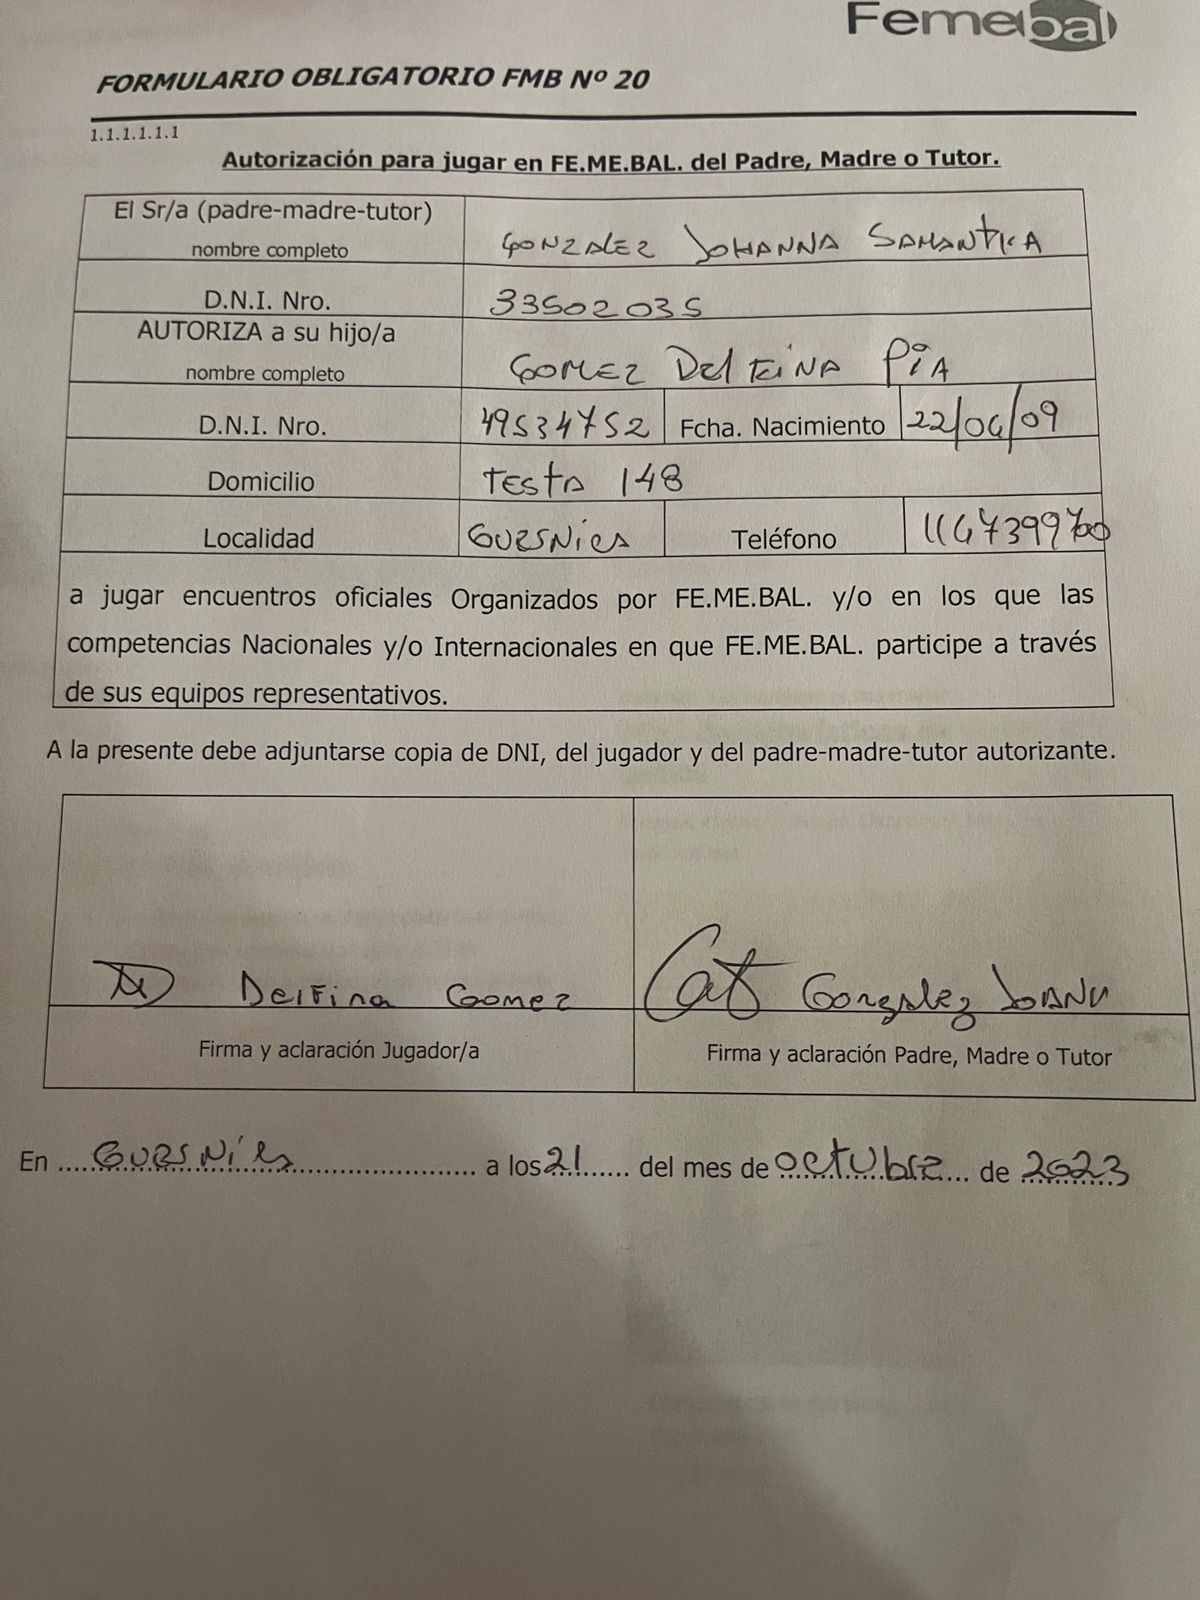 Femebal
FORMULARIO OBLIGATORIO FMB Nº 20
1.1.1.1.1.1
Autorización para jugar en FE.ME.BAL. del Padre, Madre o Tutor.
El Sr/a (padre-madre-tutor)
nombre completo
GONZALEZ JOHANNA SAMANTKA
D.N.I. Nro. 33502035
AUTORIZA a su hijo/a
nombre completo
GOMEZ DELFINA PIA
D.N.I. Nro. 49534752 Fcha. Nacimiento 22/06/09
Domicilio TESTA 148
Localidad GUERNICA Teléfono 1167399700
a jugar encuentros oficiales Organizados por FE.ME.BAL. y/o en los que las
competencias Nacionales y/o Internacionales en que FE.ME.BAL. participe a través
de sus equipos representativos.
A la presente debe adjuntarse copia de DNI, del jugador y del padre-madre-tutor autorizante.
Delfina Gomez
Gonzalez Joana
Firma y aclaración Jugador/a
Firma y aclaración Padre, Madre o Tutor
En Guernica a los 21 del mes de octubre de 2023